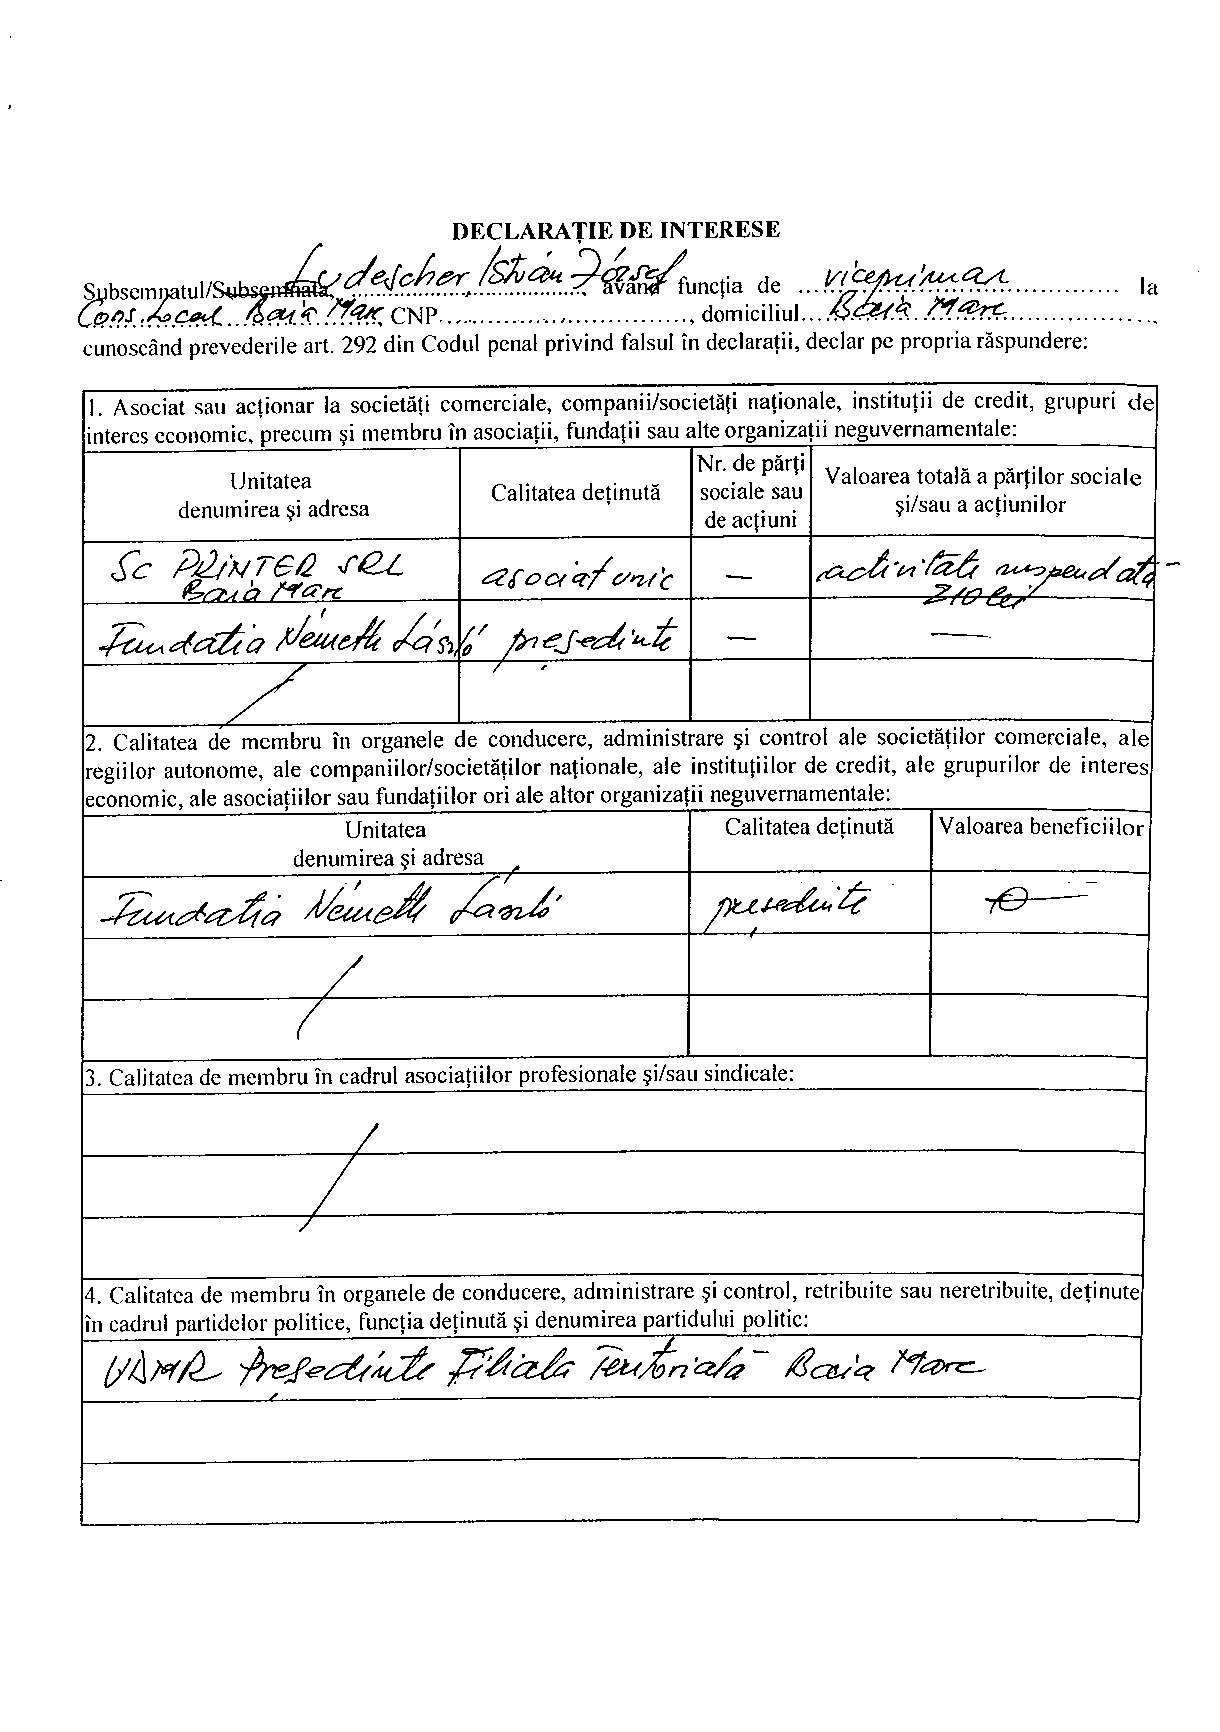 DECLARAŢIE DE INTERESE
Subsemnatul/Subsemnata, Ludescher István József având funcţia de viceprimar la
Cons. Local Baia Mare, CNP ............................, domiciliul... Baia Mare ..................,
cunoscând prevederile art. 292 din Codul penal privind falsul în declaraţii, declar pe propria răspundere:
1. Asociat sau acţionar la societăţi comerciale, companii/societăţi naţionale, instituţii de credit, grupuri de
interes economic, precum şi membru în asociaţii, fundaţii sau alte organizaţii neguvernamentale:
Unitatea
denumirea şi adresa
Calitatea deţinută
Nr. de părţi
sociale sau
de acţiuni
Valoarea totală a părţilor sociale
şi/sau a acţiunilor
SC PRINTER SRL
Baia Mare
asociat unic
—
activitate suspendată -
210 lei
Fundatia Németh László
preşedinte
—
—
2. Calitatea de membru în organele de conducere, administrare şi control ale societăţilor comerciale, ale
regiilor autonome, ale companiilor/societăţilor naţionale, ale instituţiilor de credit, ale grupurilor de interes
economic, ale asociaţiilor sau fundaţiilor ori ale altor organizaţii neguvernamentale:
Unitatea
denumirea şi adresa
Calitatea deţinută
Valoarea beneficiilor
Fundatia Németh László
preşedinte
0
3. Calitatea de membru în cadrul asociaţiilor profesionale şi/sau sindicale:
4. Calitatea de membru în organele de conducere, administrare şi control, retribuite sau neretribuite, deţinute
în cadrul partidelor politice, funcţia deţinută şi denumirea partidului politic:
UDMR Preşedinte Filiala Teritorială Baia Mare